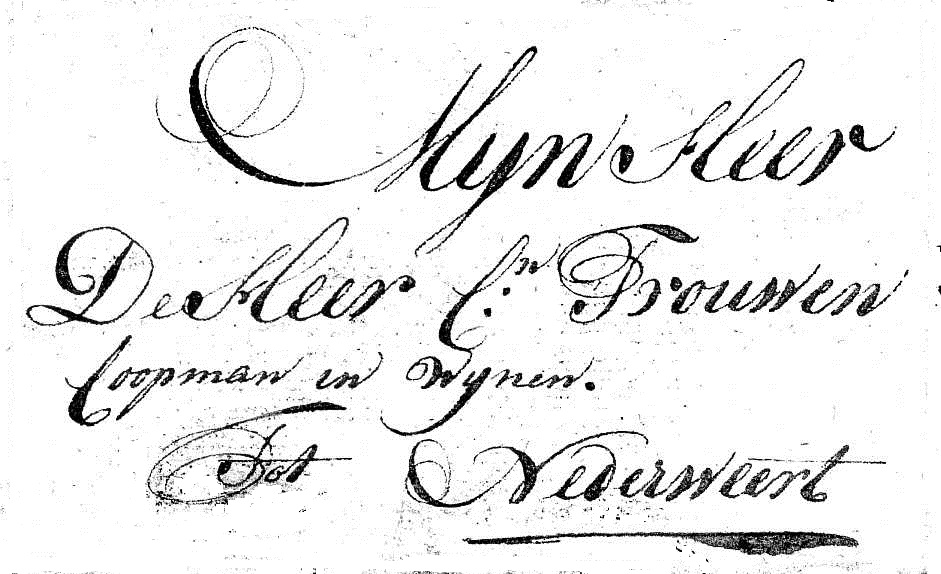 Myn Heer
De Heer C:n Trouwen
Coopman in Wynen.
Tot Nederweert